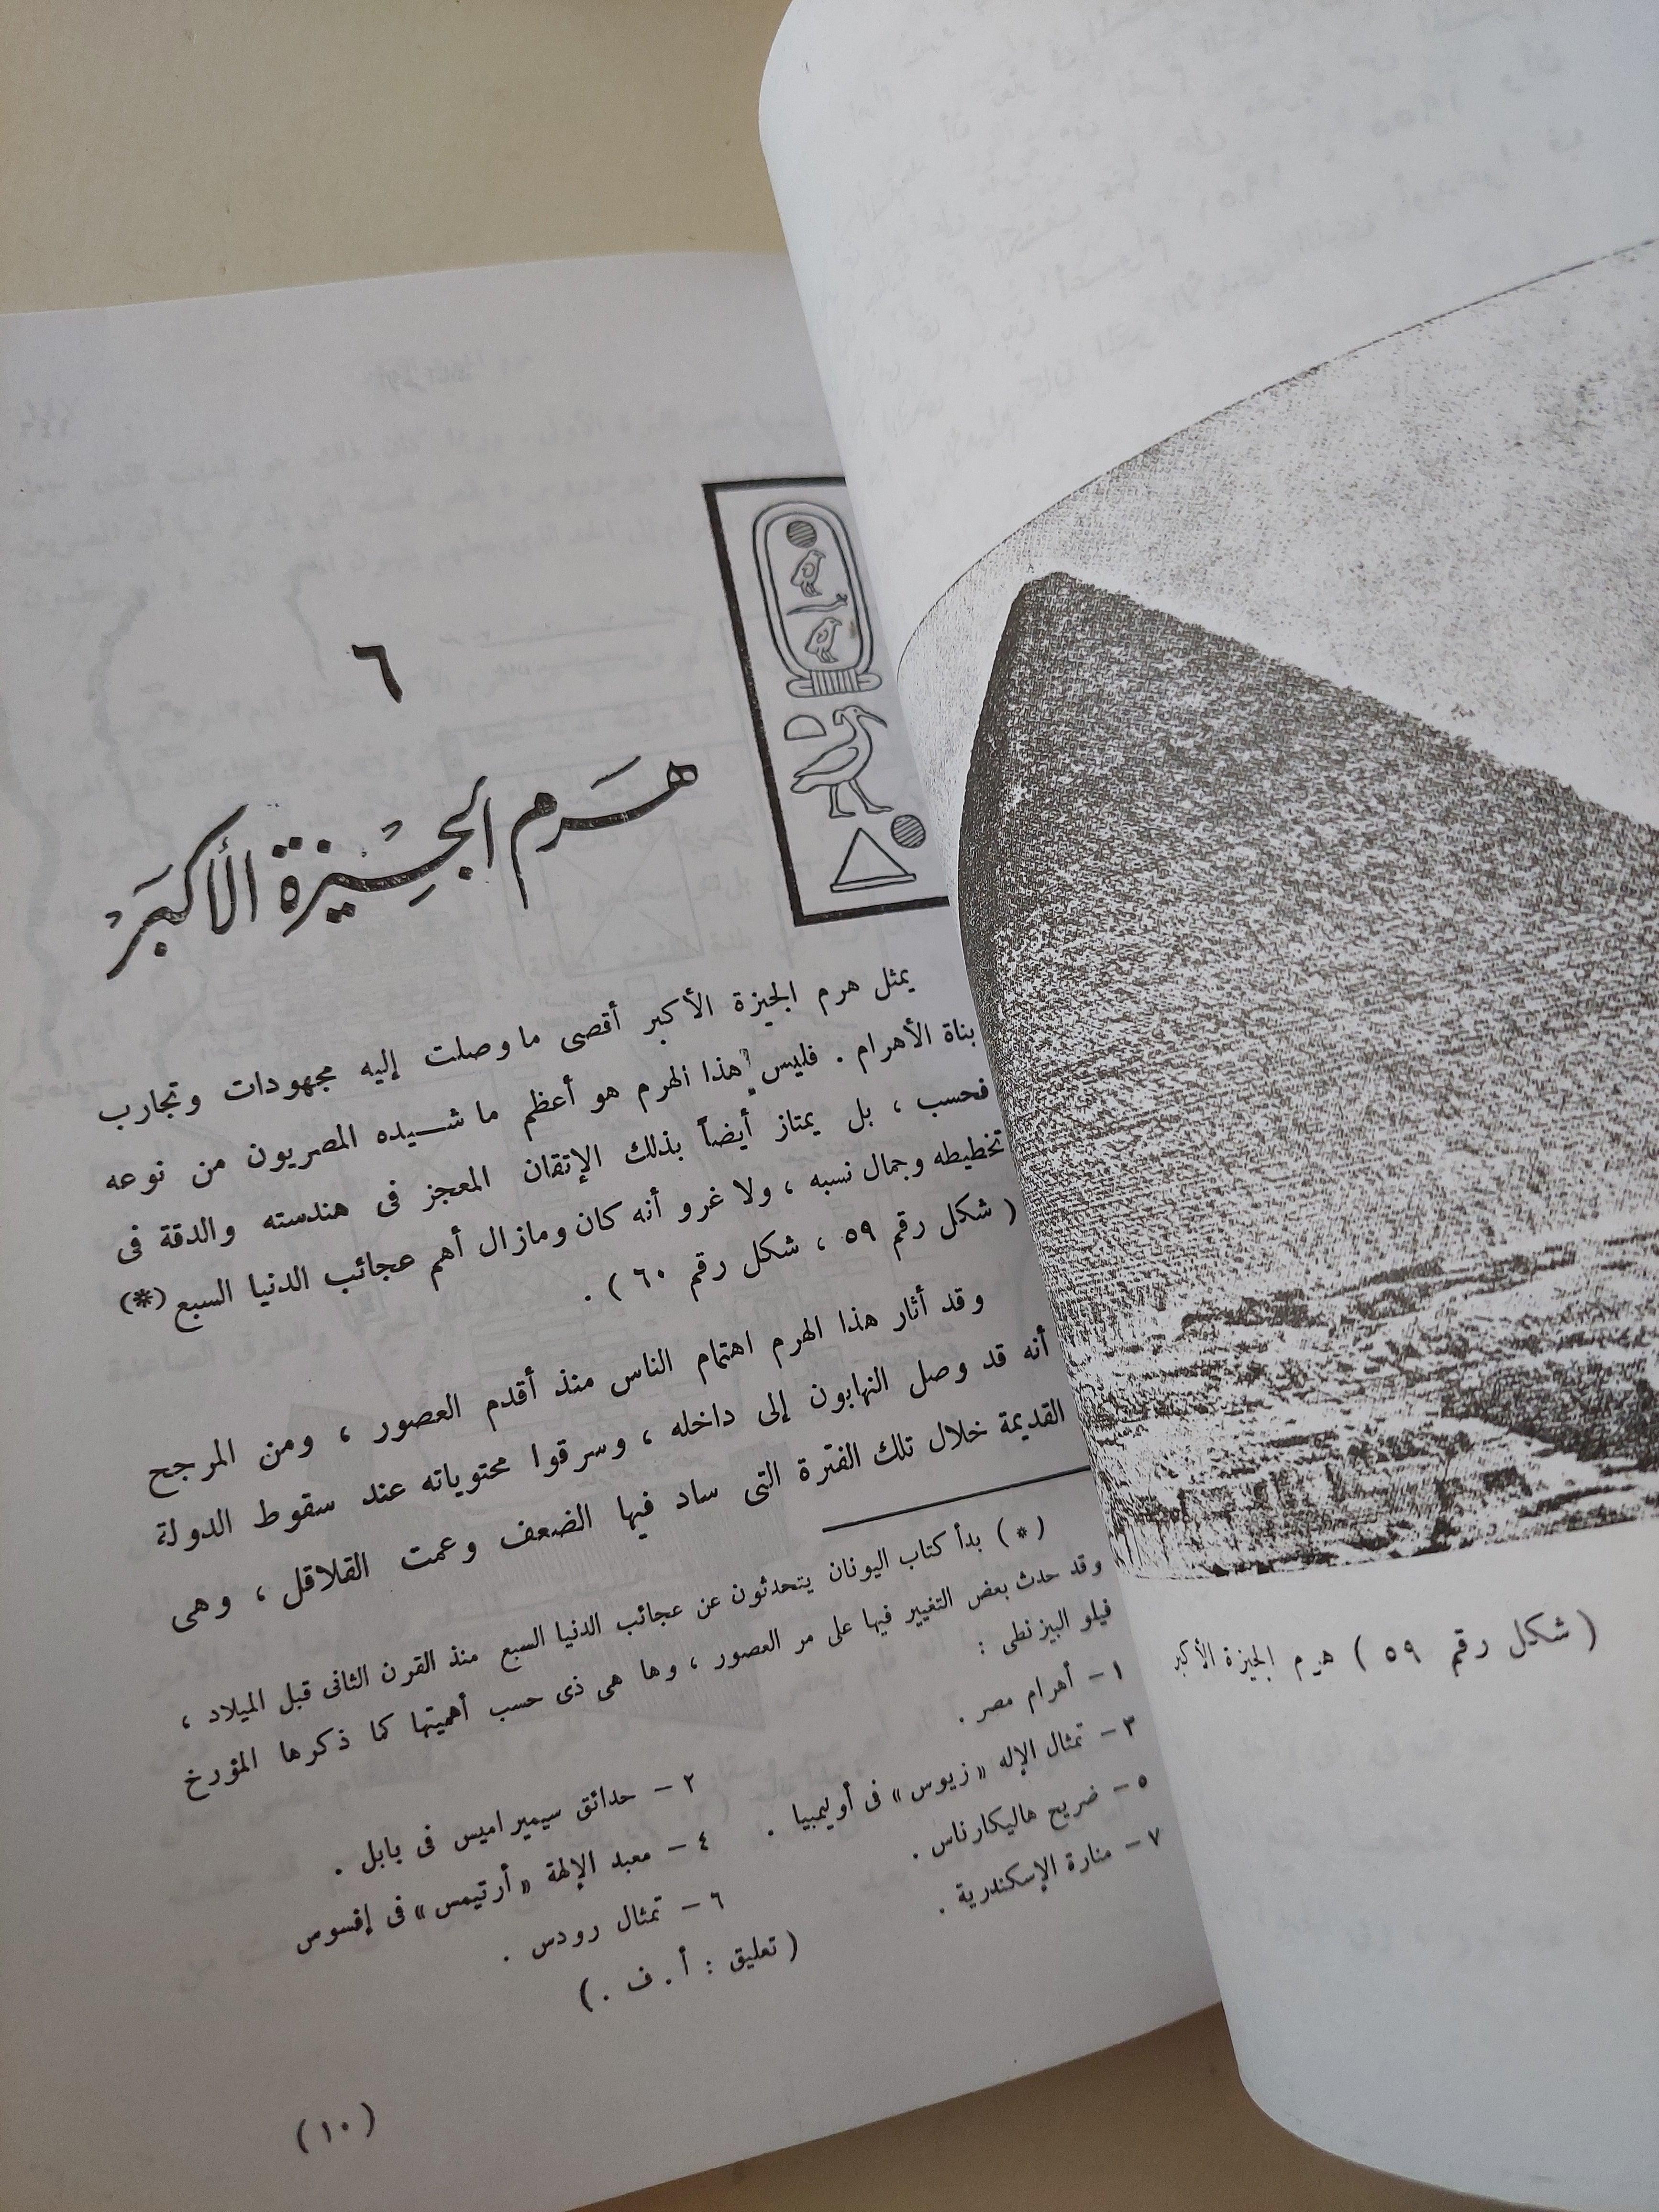 ٦
هرم الجيزة الأكبر
يمثل هرم الجيزة الأكبر أقصى ما وصلت إليه مجهودات وتجارب
بناة الأهرام . فليس هذا الهرم هو أعظم ما شيده المصريون من نوعه
فحسب ، بل يمتاز أيضاً بذلك الإتقان المعجز فى هندسته والدقة فى
تخطيطه وجمال نسبه ، ولا غرو أنه كان ومازال أهم عجائب الدنيا السبع (*)
( شكل رقم ٥٩ ، شكل رقم ٦٠ ) .
وقد أثار هذا الهرم اهتمام الناس منذ أقدم العصور ، ومن المرجح
أنه قد وصل النهابون إلى داخله ، وسرقوا محتوياته عند سقوط الدولة
القديمة خلال تلك الفترة التى ساد فيها الضعف وعمت القلاقل ، وهى
( * ) بدأ كتاب اليونان يتحدثون عن عجائب الدنيا السبع منذ القرن الثانى قبل الميلاد ،
وقد حدث بعض التغيير فيها على مر العصور ، وها هى ذى حسب أهميتها كما ذكرها المؤرخ
فيلو البيزنطى :
١ – أهرام مصر . ٢ – حدائق سيميراميس فى بابل .
٣ – تمثال الإله « زيوس » فى أوليمبيا . ٤ – معبد الإلهة « أرتيمس » فى إفسوس
٥ – ضريح هاليكارناس . ٦ – تمثال رودس .
٧ – منارة الإسكندرية . ( تعليق : أ . ف . )
( ١٠ )
( شكل رقم ٥٩ ) هرم الجيزة الأكبر